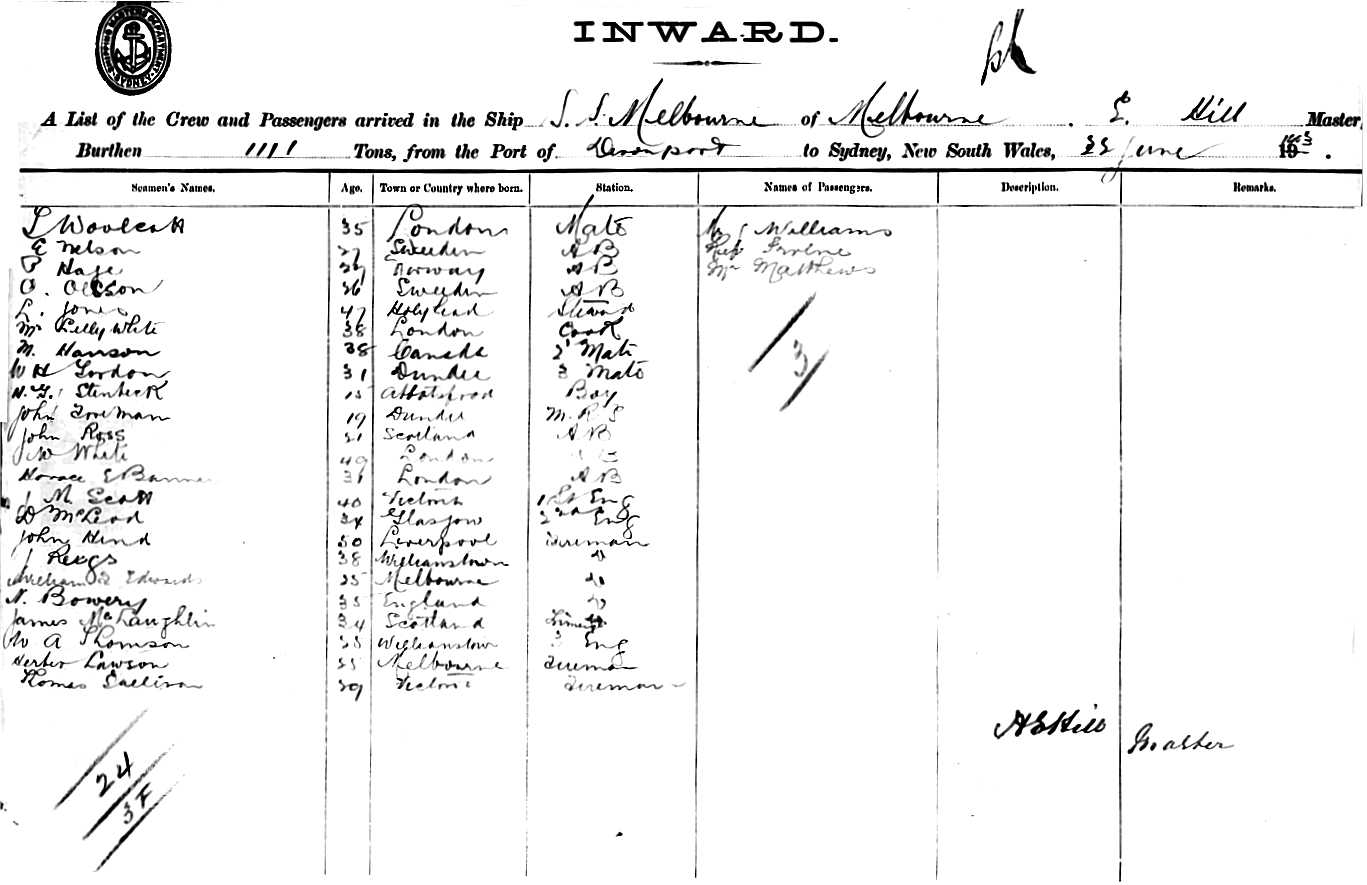 SHIPPING MASTER'S DEPARTMENT SYDNEY
INWARD.
A List of the Crew and Passengers arrived in the Ship S. S. Melbourne of Melbourne. E. Hill Master,
Burthen 1111 Tons, from the Port of Devonport to Sydney, New South Wales, June
Seamen's Names. Age. Town or Country where born. Station. Names of Passengers. Description. Remarks.
Woolcott 35 London Mate Williams
E Nelson 27 Sweden A B
P Hage Norway A B Mr Matthews
O. Olsson 26 Sweden A B
L. Jones 47 Holyhead Steward
Wm Lillywhite 38 London Cook
M. Hanson 38 Canada 2 Mate 3
W H Gordon 31 Dundee 3 Mate
Stenbeck 15 Abbotsford Boy
John Foreman 19 Dundee M. R. S
John Ross 21 Scotland A B
W White 49 London
Horace E 31 London A B
J M. Scott 40 Victoria 1 St Eng
D McLeod 34 Glasgow 2nd Eng
John Hind 50 Liverpool Fireman
J 38 Williamstown
William Edwards 25 Melbourne
N. Bowery 35 England
James McLaughlin 34 Scotland
W A Thomson 25 Williamstown 3 Eng
Lawson 25 Melbourne Fireman
Thomas Sullivan 29 Victoria Fireman
A E Hill Master
24
3 F